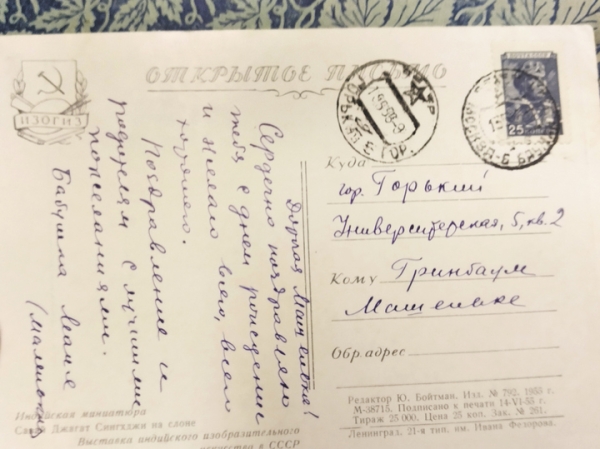 ОТКРЫТОЕ ПИСЬМО
ИЗОГИЗ
Дорогая Машенька!
Сердечно поздравляю
тебя с днем рождения
и желаю всего, всего
хорошего.
Поздравление и
родителям с лучшими
пожеланиями.
Бабушка Маня
(маленькая
ПОЧТА СССР
25
ГОР.
Куда
гор. Горький
Университетская, 5, кв. 2
Кому Гринбаум
Машеньке
Обр. адрес
Индийская миниатюра
Джагат Сингхджи на слоне
Выставка индийского изобразительного
искусства в СССР
Редактор Ю. Бойтман. Изд. № 792. 1953 г.
М-38715. Подписано к печати 14-VI-53 г.
Тираж 25 000. Цена 25 коп. Зак. № 261.
Ленинград. 21-я тип. им. Ивана Федорова.